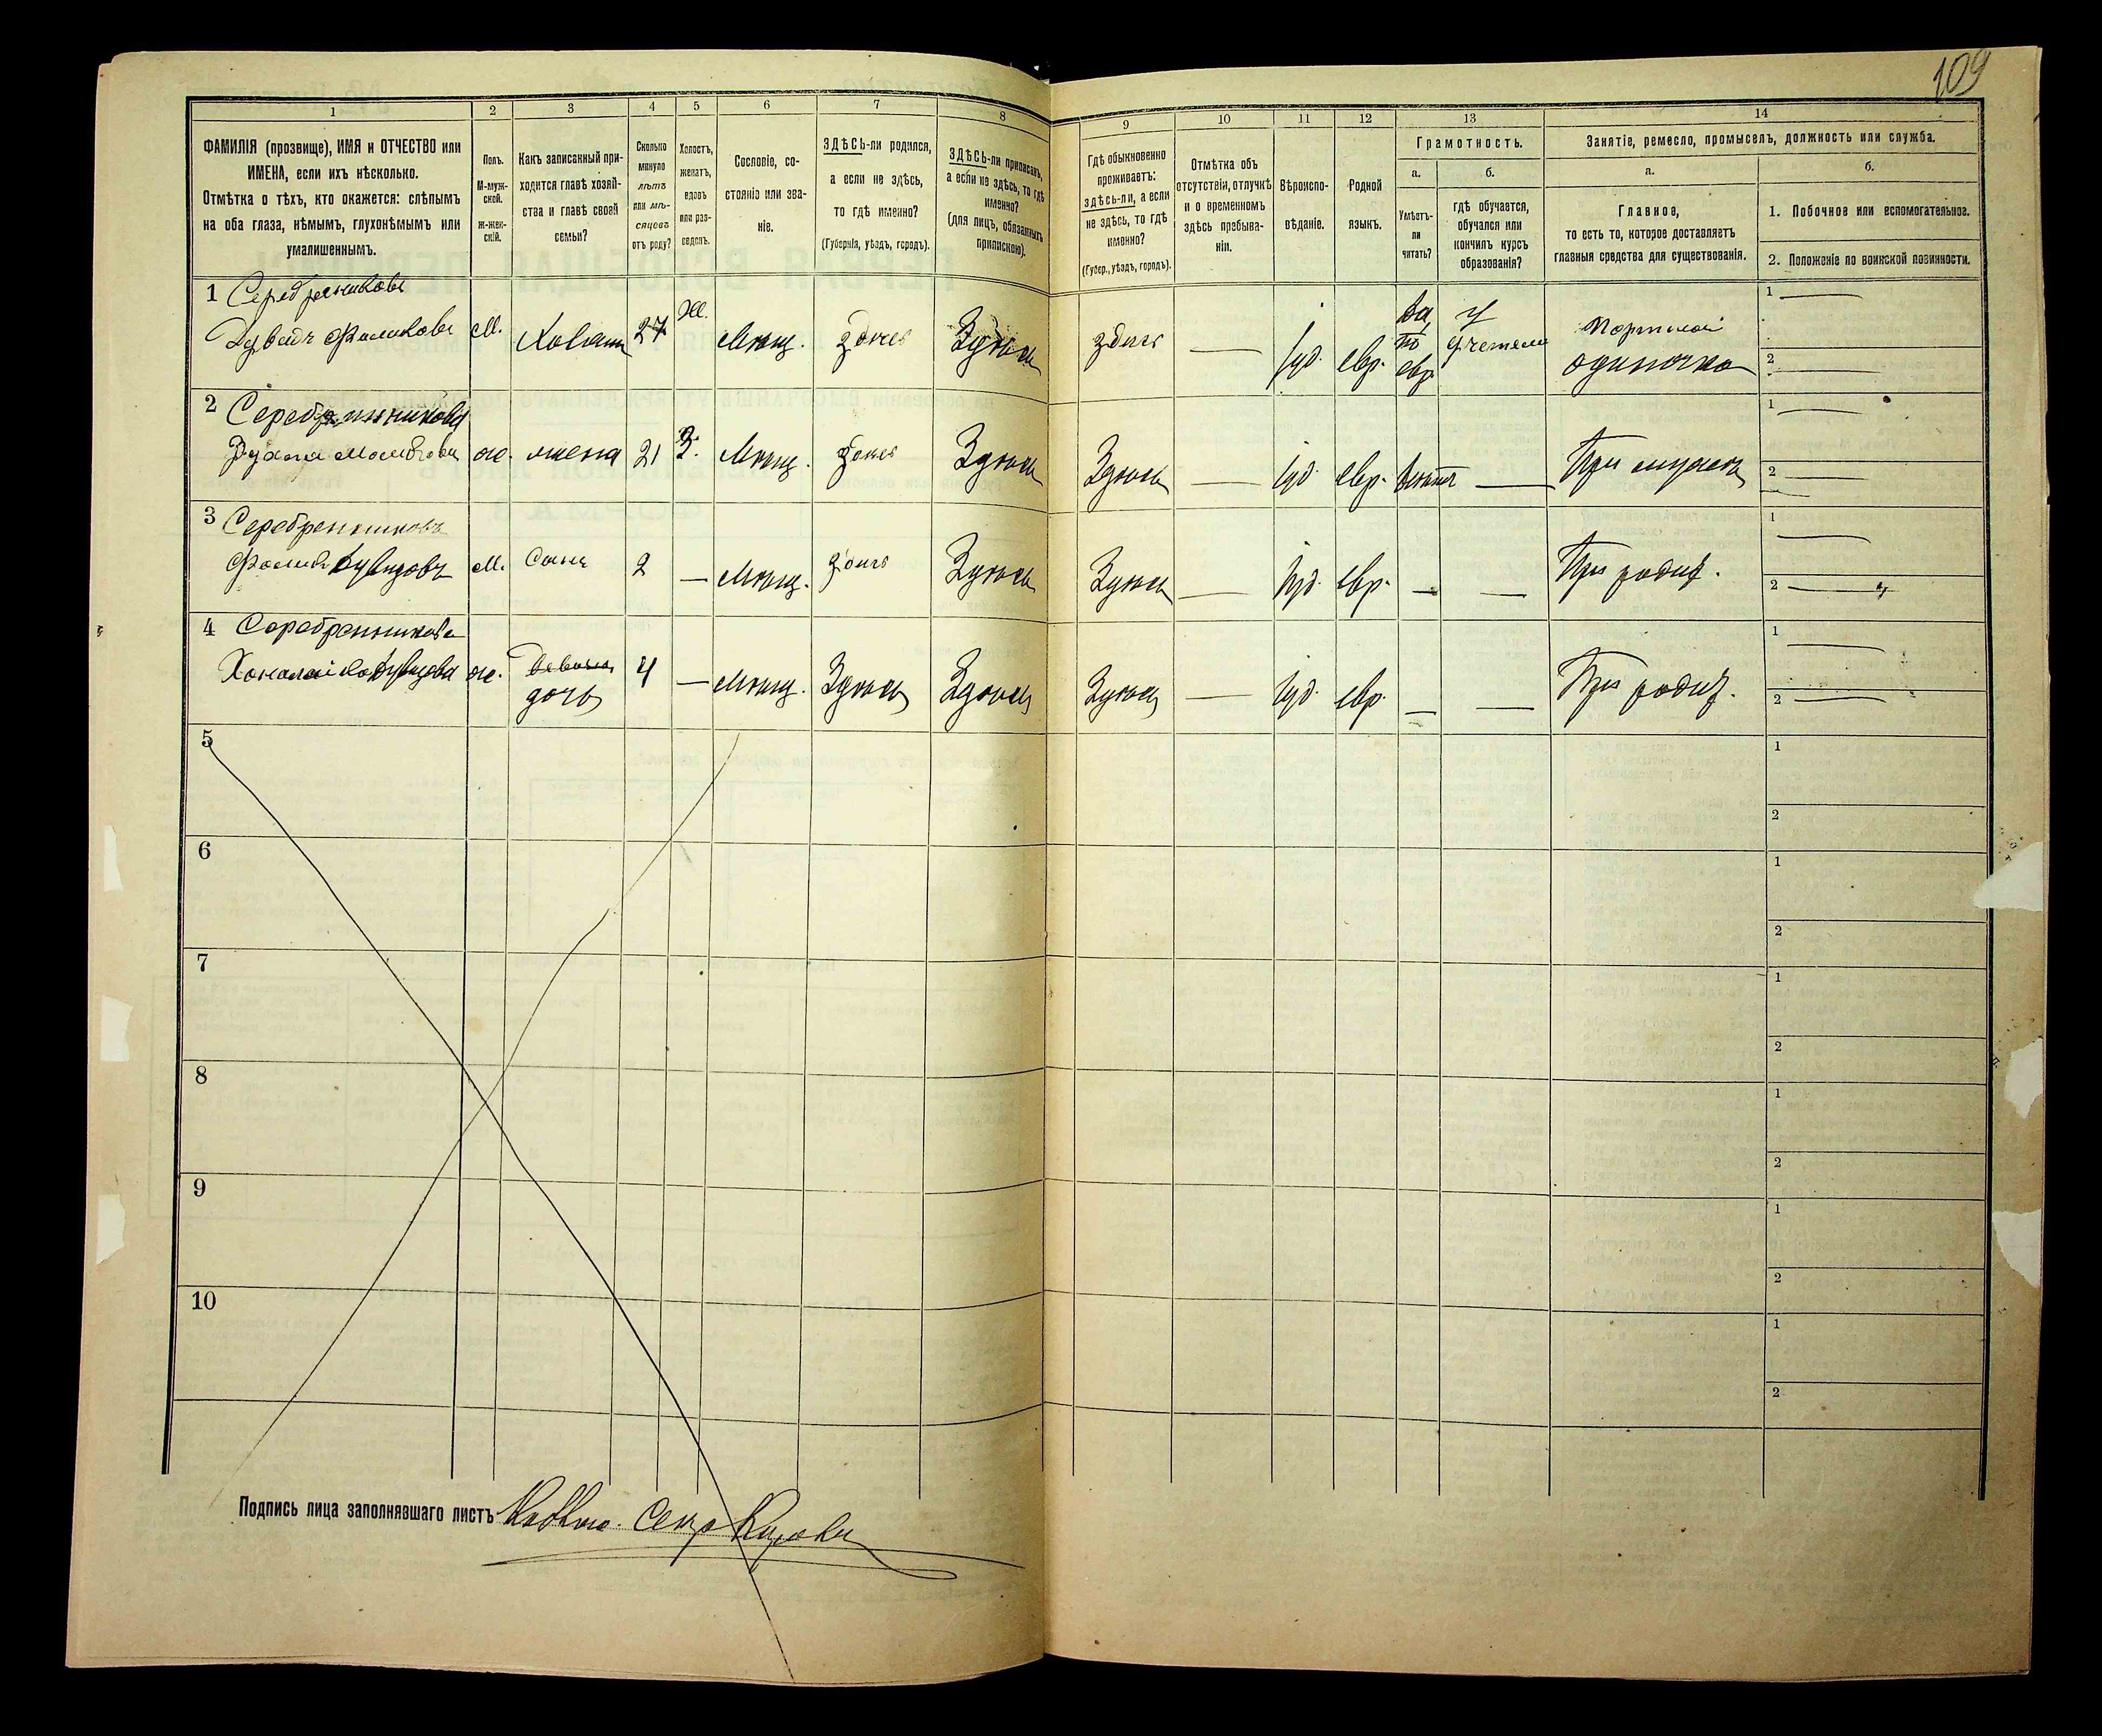 109
1
2
3
4
5
6
7
8
9
10
11
12
13
14
ФАМИЛІЯ (прозвище), ИМЯ и ОТЧЕСТВО или
ИМЕНА, если ихъ нѣсколько.
Отмѣтка о тѣхъ, кто окажется: слѣпымъ
на оба глаза, нѣмымъ, глухонѣмымъ или
умалишеннымъ.
Полъ.
М-муж-
ской.
Ж-жен-
скій.
Какъ записанный при-
ходится главѣ хозяй-
ства и главѣ своей
семьи?
Сколько
минуло
лѣтъ
или мѣ-
сяцевъ
отъ роду?
Холостъ,
женатъ,
вдовъ
или раз-
веденъ.
Сословіе, со-
стояніе или зва-
ніе.
ЗДѢСЬ-ли родился,
а если не здѣсь,
то гдѣ именно?
(Губернія, уѣздъ, городъ).
ЗДѢСЬ-ли приписанъ,
а если не здѣсь, то гдѣ
именно?
(для лицъ, обязанныхъ
припискою).
Гдѣ обыкновенно
проживаетъ:
здѣсь-ли, а если
не здѣсь, то гдѣ
именно?
(Губер., уѣздъ, городъ).
Отмѣтка объ
отсутствіи, отлучкѣ
и о временномъ
здѣсь пребыва-
ніи.
Вѣроиспо-
вѣданіе.
Родной
языкъ.
Грамотность.
а.
б.
Умѣетъ-
ли
читать?
гдѣ обучается,
обучался или
кончилъ курсъ
образованія?
Занятіе, ремесло, промыселъ, должность или служба.
а.
б.
Главное,
то есть то, которое доставляетъ
главныя средства для существованія.
1. Побочное или вспомогательное.
2. Положеніе по воинской повинности.
1 Серебренниковъ
Дувидъ Фаликовъ М. 27 Ж. Мѣщ. здѣсь здѣсь здѣсь — іуд. евр. да по евр. у учителя Портной одиночка
1 —
2 —
2 Серебрянникова
ж. жена 21 З. Мѣщ. здѣсь Здѣсь Здѣсь — іуд. евр. — При мужѣ
1 —
2 —
3 Серебренниковъ
Фаликъ Дувидовъ М. Сынъ 2 — Мѣщ. здѣсь Здѣсь Здѣсь — іуд. евр. — — При родит.
1 —
2 —
4 Серебренникова
Дувидова ж. дочь 4 — Мѣщ. Здѣсь Здѣсь Здѣсь — іуд. евр. — — При родит.
1 —
2 —
5
1
2
6
1
2
7
1
2
8
1
2
9
1
2
10
1
2
Подпись лица заполнявшаго листъ